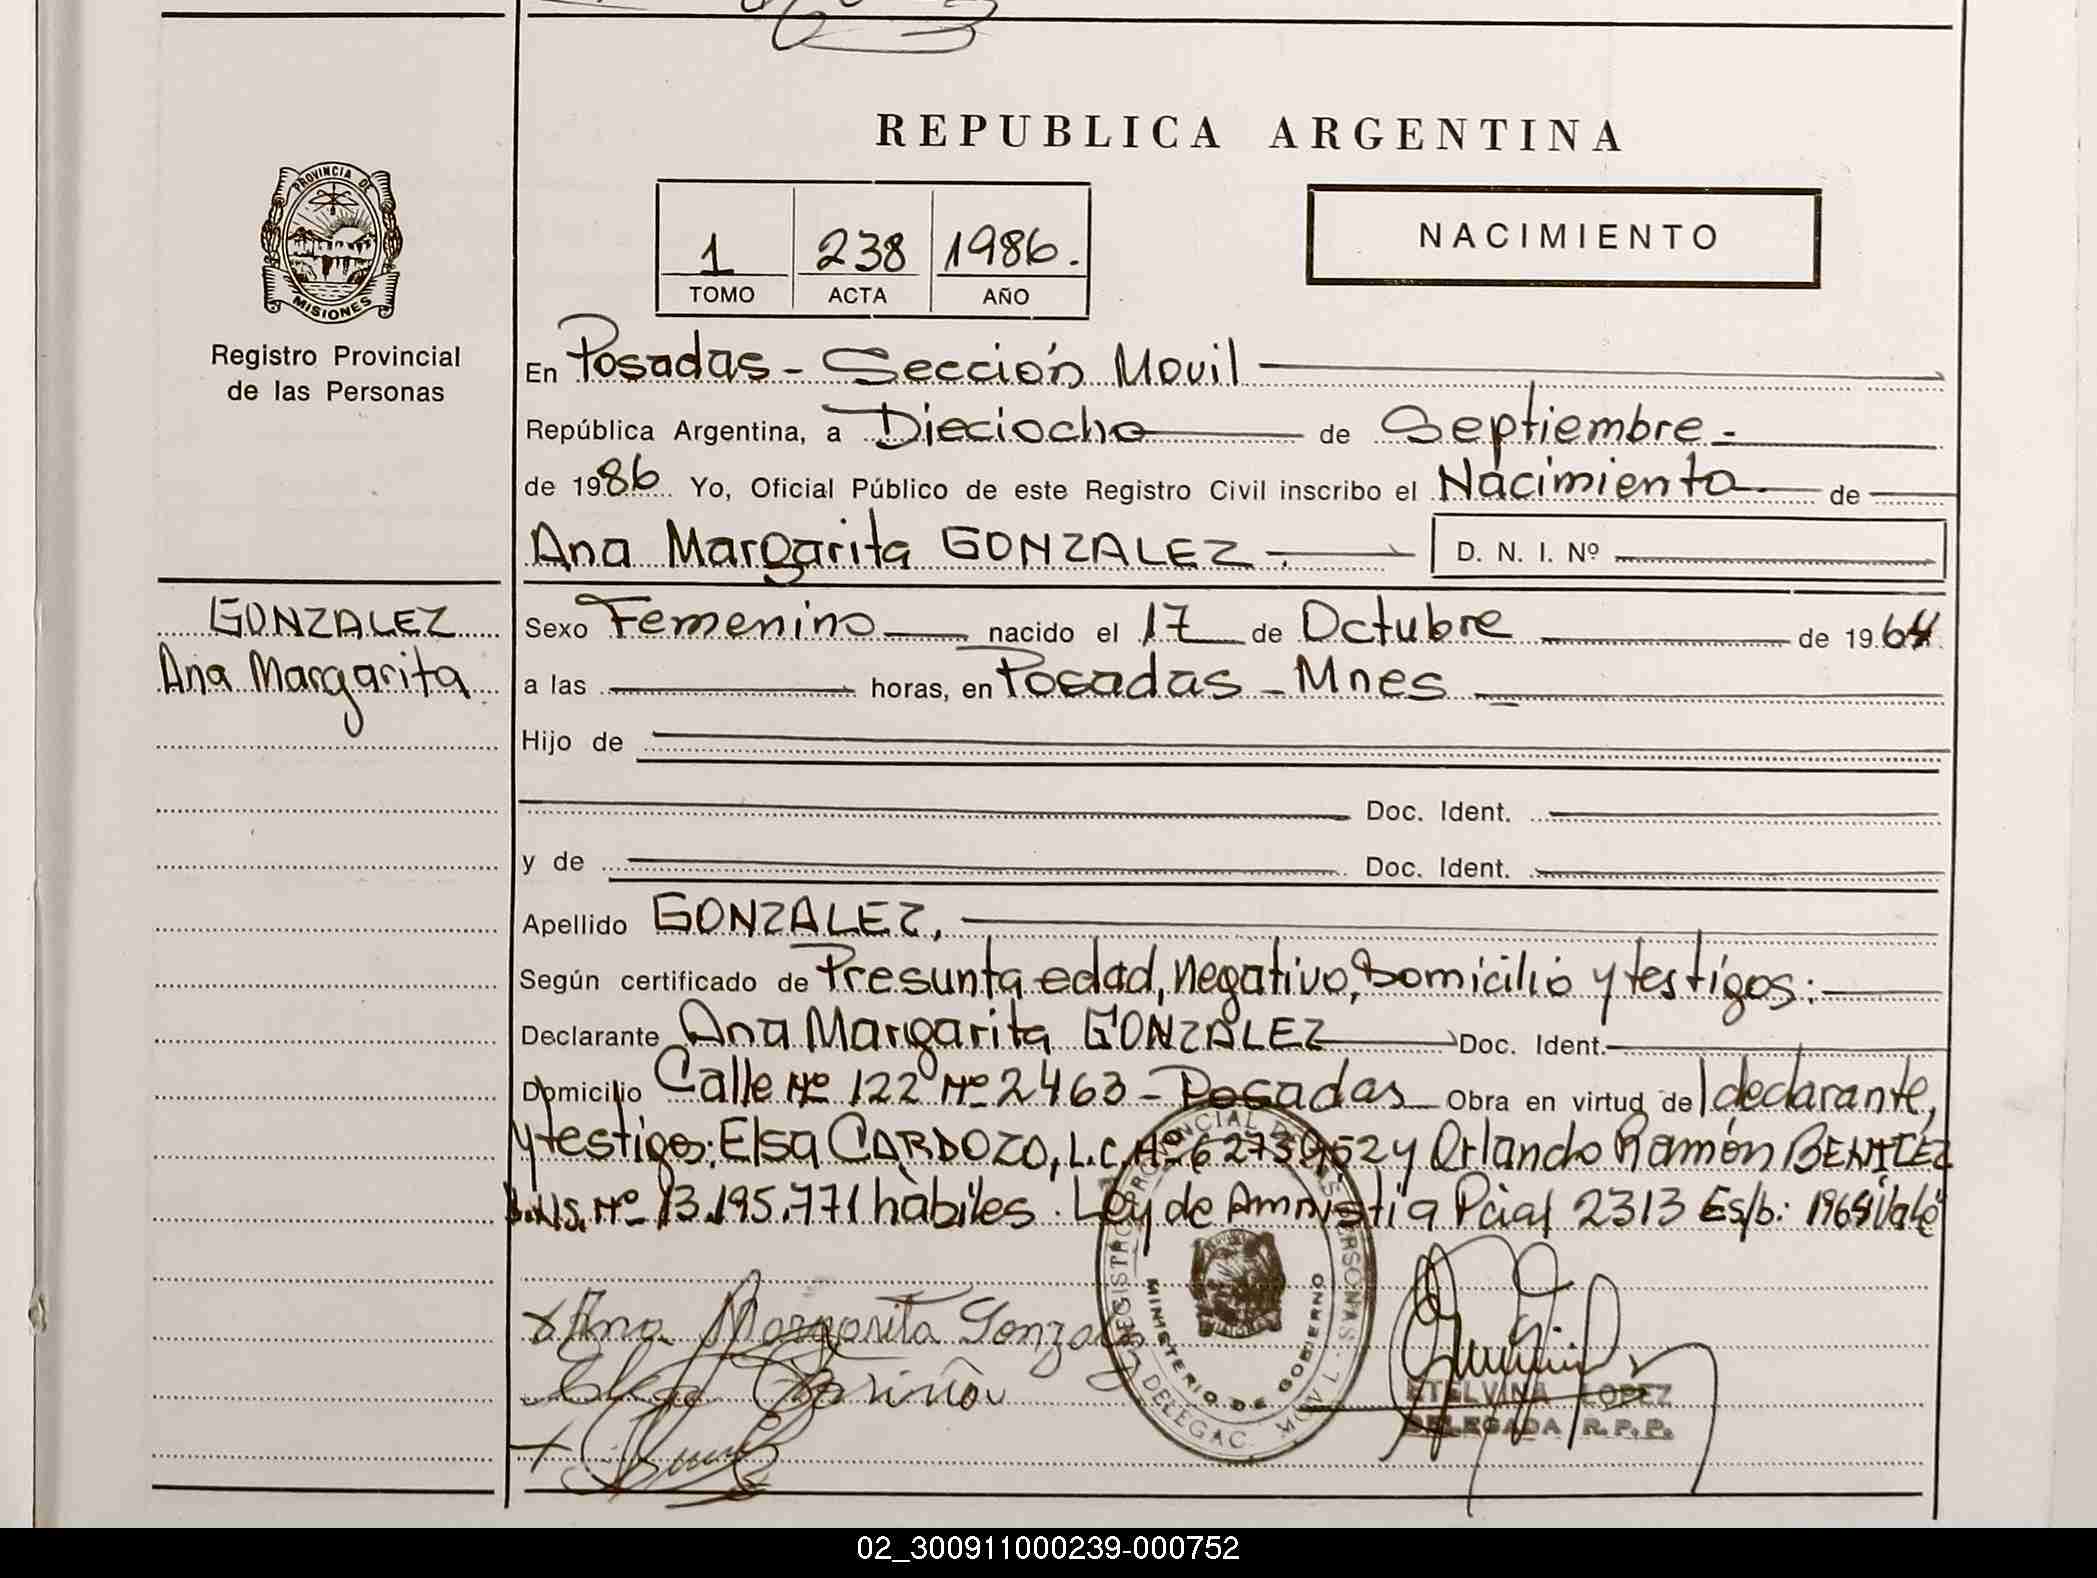 REPUBLICA ARGENTINA
PROVINCIA DE
MISIONES
Registro Provincial
de las Personas
1 238 1986.
TOMO ACTA AÑO
NACIMIENTO
En Posadas - Sección Movil
República Argentina, a Dieciocho de Septiembre.-
de 1986 Yo, Oficial Público de este Registro Civil inscribo el Nacimiento de
Ana Margarita GONZALEZ. D. N. I. Nº
GONZALEZ
Ana Margarita
Sexo Femenino nacido el 17 de Octubre de 1964
a las horas, en Posadas - Mnes
Hijo de
Doc. Ident.
y de Doc. Ident.
Apellido GONZALEZ,
Según certificado de Presunta edad, negativo, Domicilio y testigos:
Declarante Ana Margarita GONZALEZ Doc. Ident.
Domicilio Calle Nº 122 Nº 2463 - Posadas Obra en virtud de l declarante,
y testigos: Elsa CARDOZO, L.C. Nº 6273952 y Orlando Ramón BENITEZ
Nº 13.195.771 hàbiles. Ley de Amnistia Pcial 2313 Es/b: 1964 Vale
x Ana Margarita Gonzalez
REGISTRO PROVINCIAL DE LAS PERSONAS
MINISTERIO DE GOBIERNO
DELEGAC. MOVIL
ETELVINA LOPEZ
DELEGADA R.P.P.
02_300911000239-000752